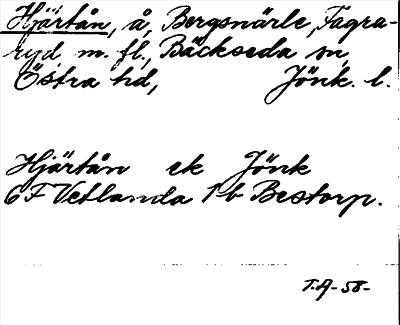 Hjärtån, å, Bergsnärle, Fagra-
ryd m. fl., Bäckseda sn,
Östra hd, Jönk. l.
Hjärtån ek Jönk
6F Vetlanda 1b Bestorp.
T.A-58-